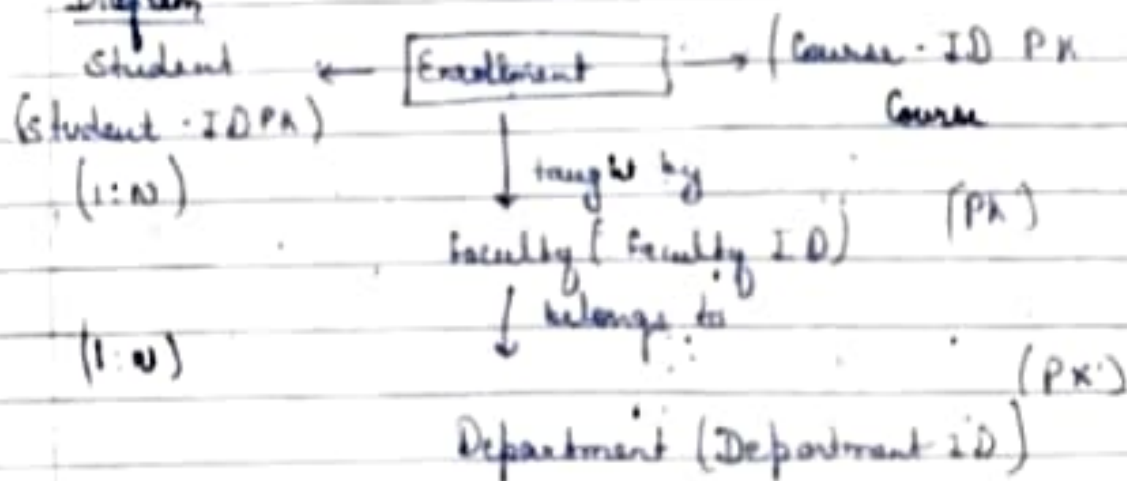 Diagram
Student ← Enrollment → (Course - ID PK
(Student - ID PK) Course
(1:N) taught by
Faculty (Faculty ID) (PK)
belongs to
(1:N) (PK)
Department (Department ID)